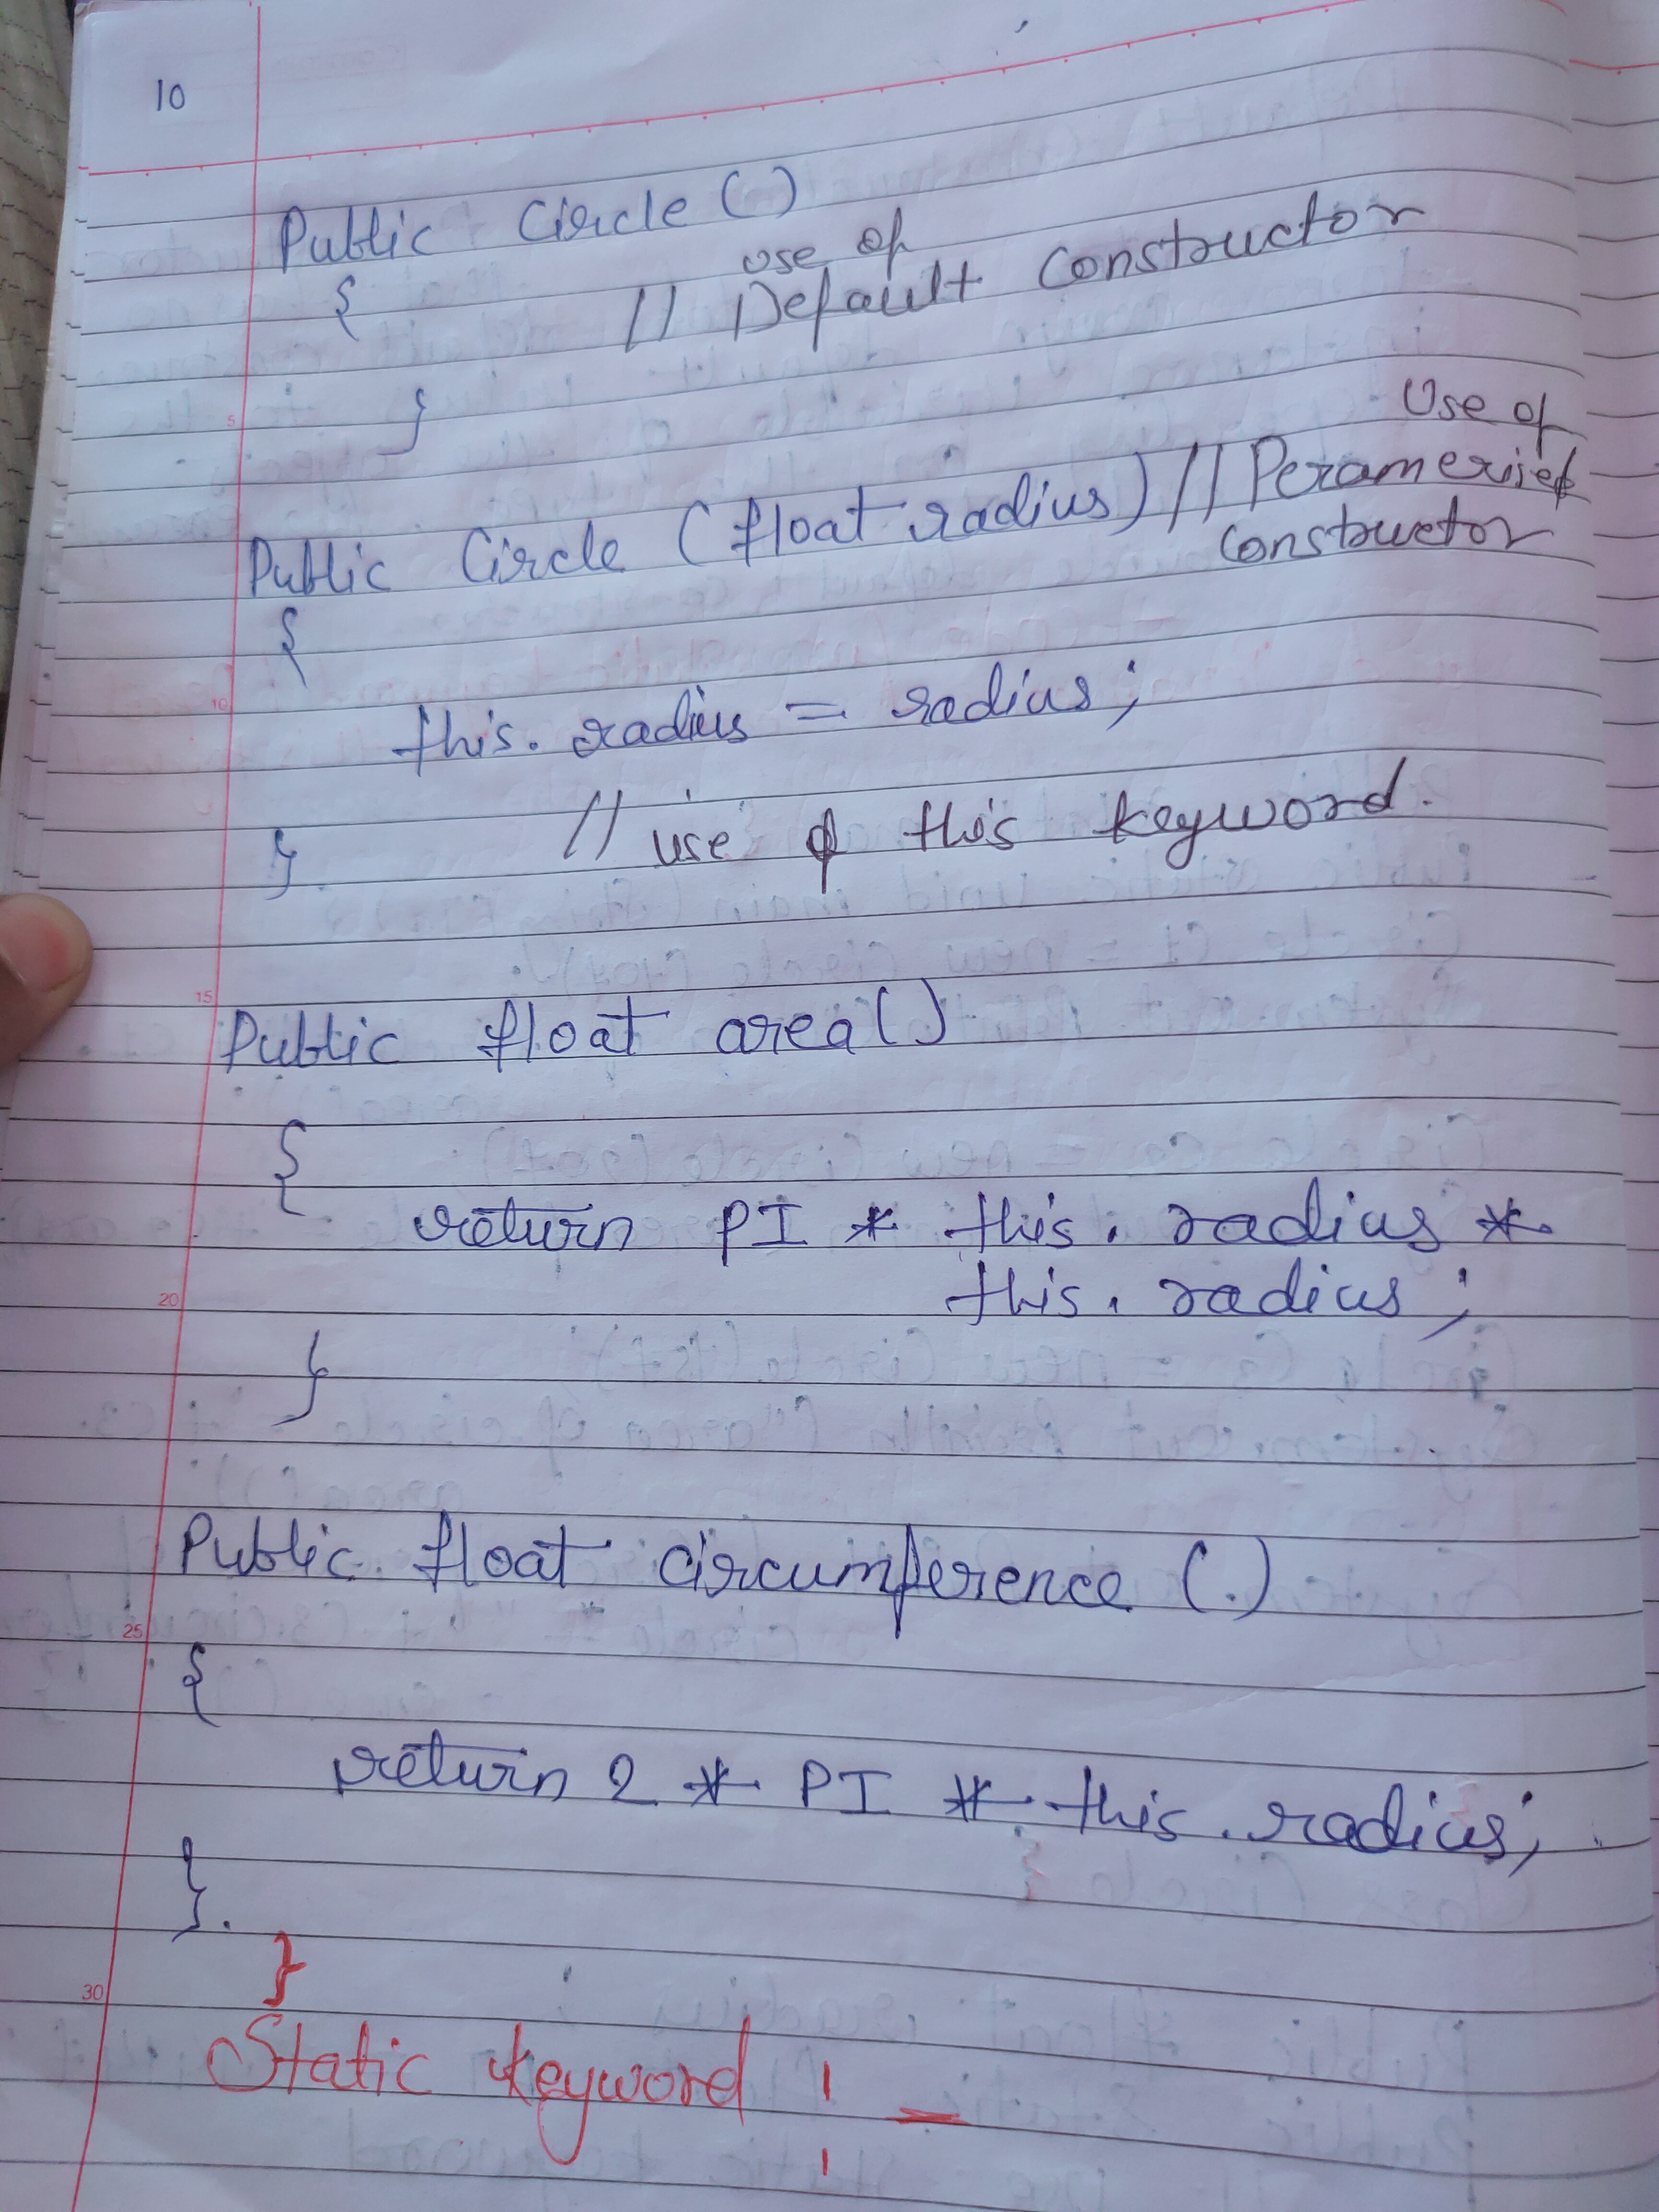 10
Public Circle ()
{ // use of Default constructor
5
}
Use of
Public Circle (float radius) // Peramerised
constructor
{
10
this. radius = radius;
// use of this keyword.
}
15
Public float area()
{
return PI * this. radius *
20
this. radius ;
}
Public float circumference ()
25
{
return 2 * PI * this. radius;
}.
}
30
Static keyword : -